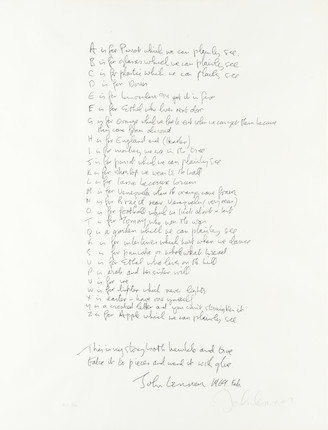 A is for Parrot which we can plainly see
B is for glasses which we can plainly see
C is for plastic which we can plainly see
D is for Doris
E is for binoculars I'll get it in five
F is for Ethel who lives next door
G is for orange which we love to eat when we can get them because
they come from abroad
H is for England and (Heather)
I is for monkey we see in the tree
J is for parrot which we can plainly see
K is for shoetop we wear to the ball
L is for
because
M is for Venezuela where the oranges come from
N is for Brazil near Venezuela (very near)
O is for football which we kick about a bit
T is for Tommy who won the war
Q is a garden which we can plainly see
R is for intestines which hurt when we dance
S is for pancake or whole wheat bread
U is for Ethel who lives on the hill
P is arab and her sister will
V is for me
W is for lighter which never lights
X is easter - have one yourself
Y is a crooked letter and you can't straighten it
Z is for Apple which we can plainly see
This is my story both humble and true
Take it to pieces and mend it with glue
John Lennon 1969 Feb.